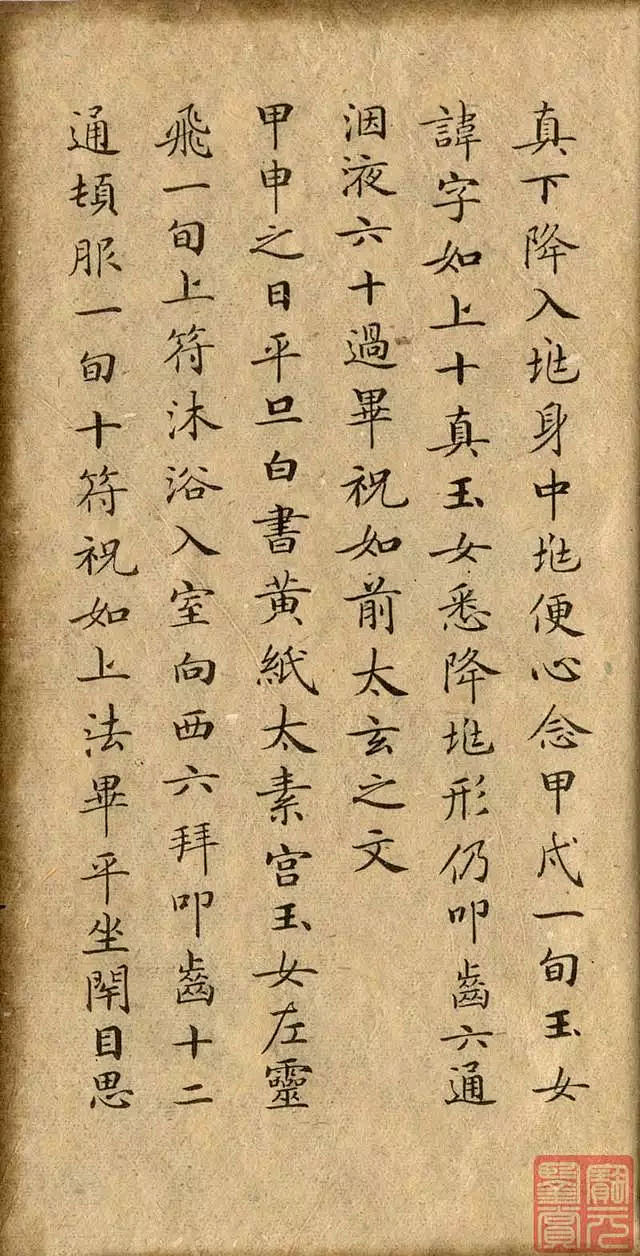 真下降入兆身中兆便心念甲戌一旬玉女
諱字如上十真玉女悉降兆形仍叩齒六通
洇液六十過畢祝如前太玄之文
甲申之日平旦白書黃紙太素宮玉女左靈
飛一旬上符沐浴入室向西六拜叩齒十二
通頓服一旬十符祝如上法畢平坐閉目思